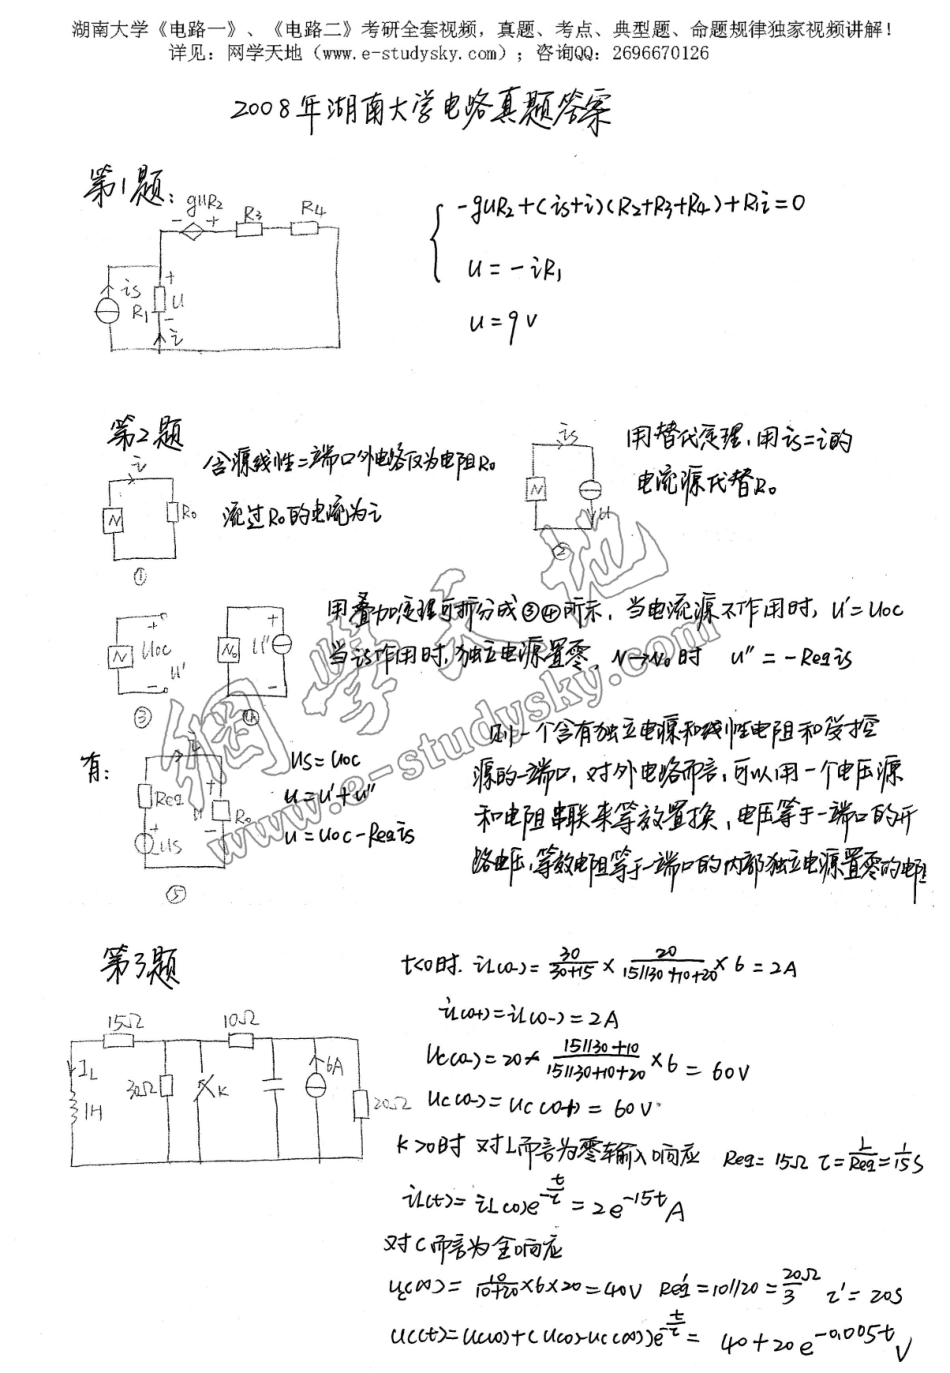 湖南大学《电路一》、《电路二》考研全套视频，真题、考点、典型题、命题规律独家视频讲解！
详见：网学天地（www.e-studysky.com）；咨询QQ：2696670126
2008年湖南大学电路真题答案
第1题：
guR₂
- +
R₃
R₄
is
R₁
+
u
-
i
-guR₂+(is+i)(R₂+R₃+R₄)+R₁i=0
u=-iR₁
u=9V
第2题
i
N
R₀
①
含源线性二端口外电路仅为电阻R₀
流过R₀的电流为i
is
N
u
②
用替代定理，用is=i的
电流源代替R₀
N
+
Uoc
u'
-
③
N₀
+
u''
-
④
用叠加定理可拆分成③④所示，当电流源不作用时，u'=Uoc
当is作用时，独立电源置零，N→N₀时 u''=-Reqis
有：
i
Req
+
u
-
R₀
+
Us
-
⑤
Us=Uoc
u=u'+u''
u=Uoc-Reqis
则一个含有独立电源和线性电阻和受控
源的一端口，对外电路而言，可以用一个电压源
和电阻串联来等效置换，电压等于一端口的开
路电压，等效电阻等于一端口的内部独立电源置零的电阻
网学天地
www.e-studysky.com
第3题
15Ω
10Ω
I_L
1H
30Ω
K
6A
20Ω
t<0时. iL(0-)=30/(30+15)×20/(15//30+10+20)×6=2A
iL(0+)=iL(0-)=2A
Uc(0-)=20×(15//30+10)/(15//30+10+20)×6=60V
Uc(0-)=Uc(0+)=60V.
K>0时 对L而言为零输入响应 Req=15Ω τ=L/Req=1/15S
iL(t)=iL(0)e^(-t/τ)=2e^(-15t)A
对C而言为全响应
Uc(∞)=10/(10+20)×6×20=40V Req'=10//20=20/3Ω τ'=20S
Uc(t)=Uc(∞)+(Uc(0)-Uc(∞))e^(-t/τ)=40+20e^(-0.005t)V